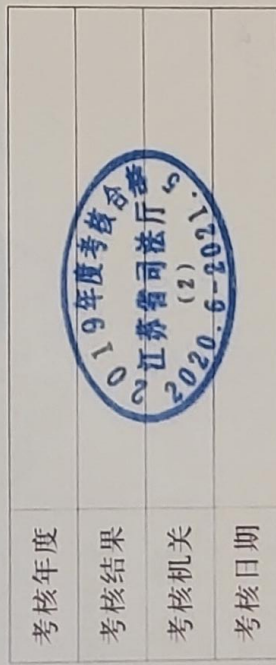 考核年度
考核结果
考核机关
考核日期
2019年度考核合格
江苏省司法厅
(2)
2020.6-2021.5